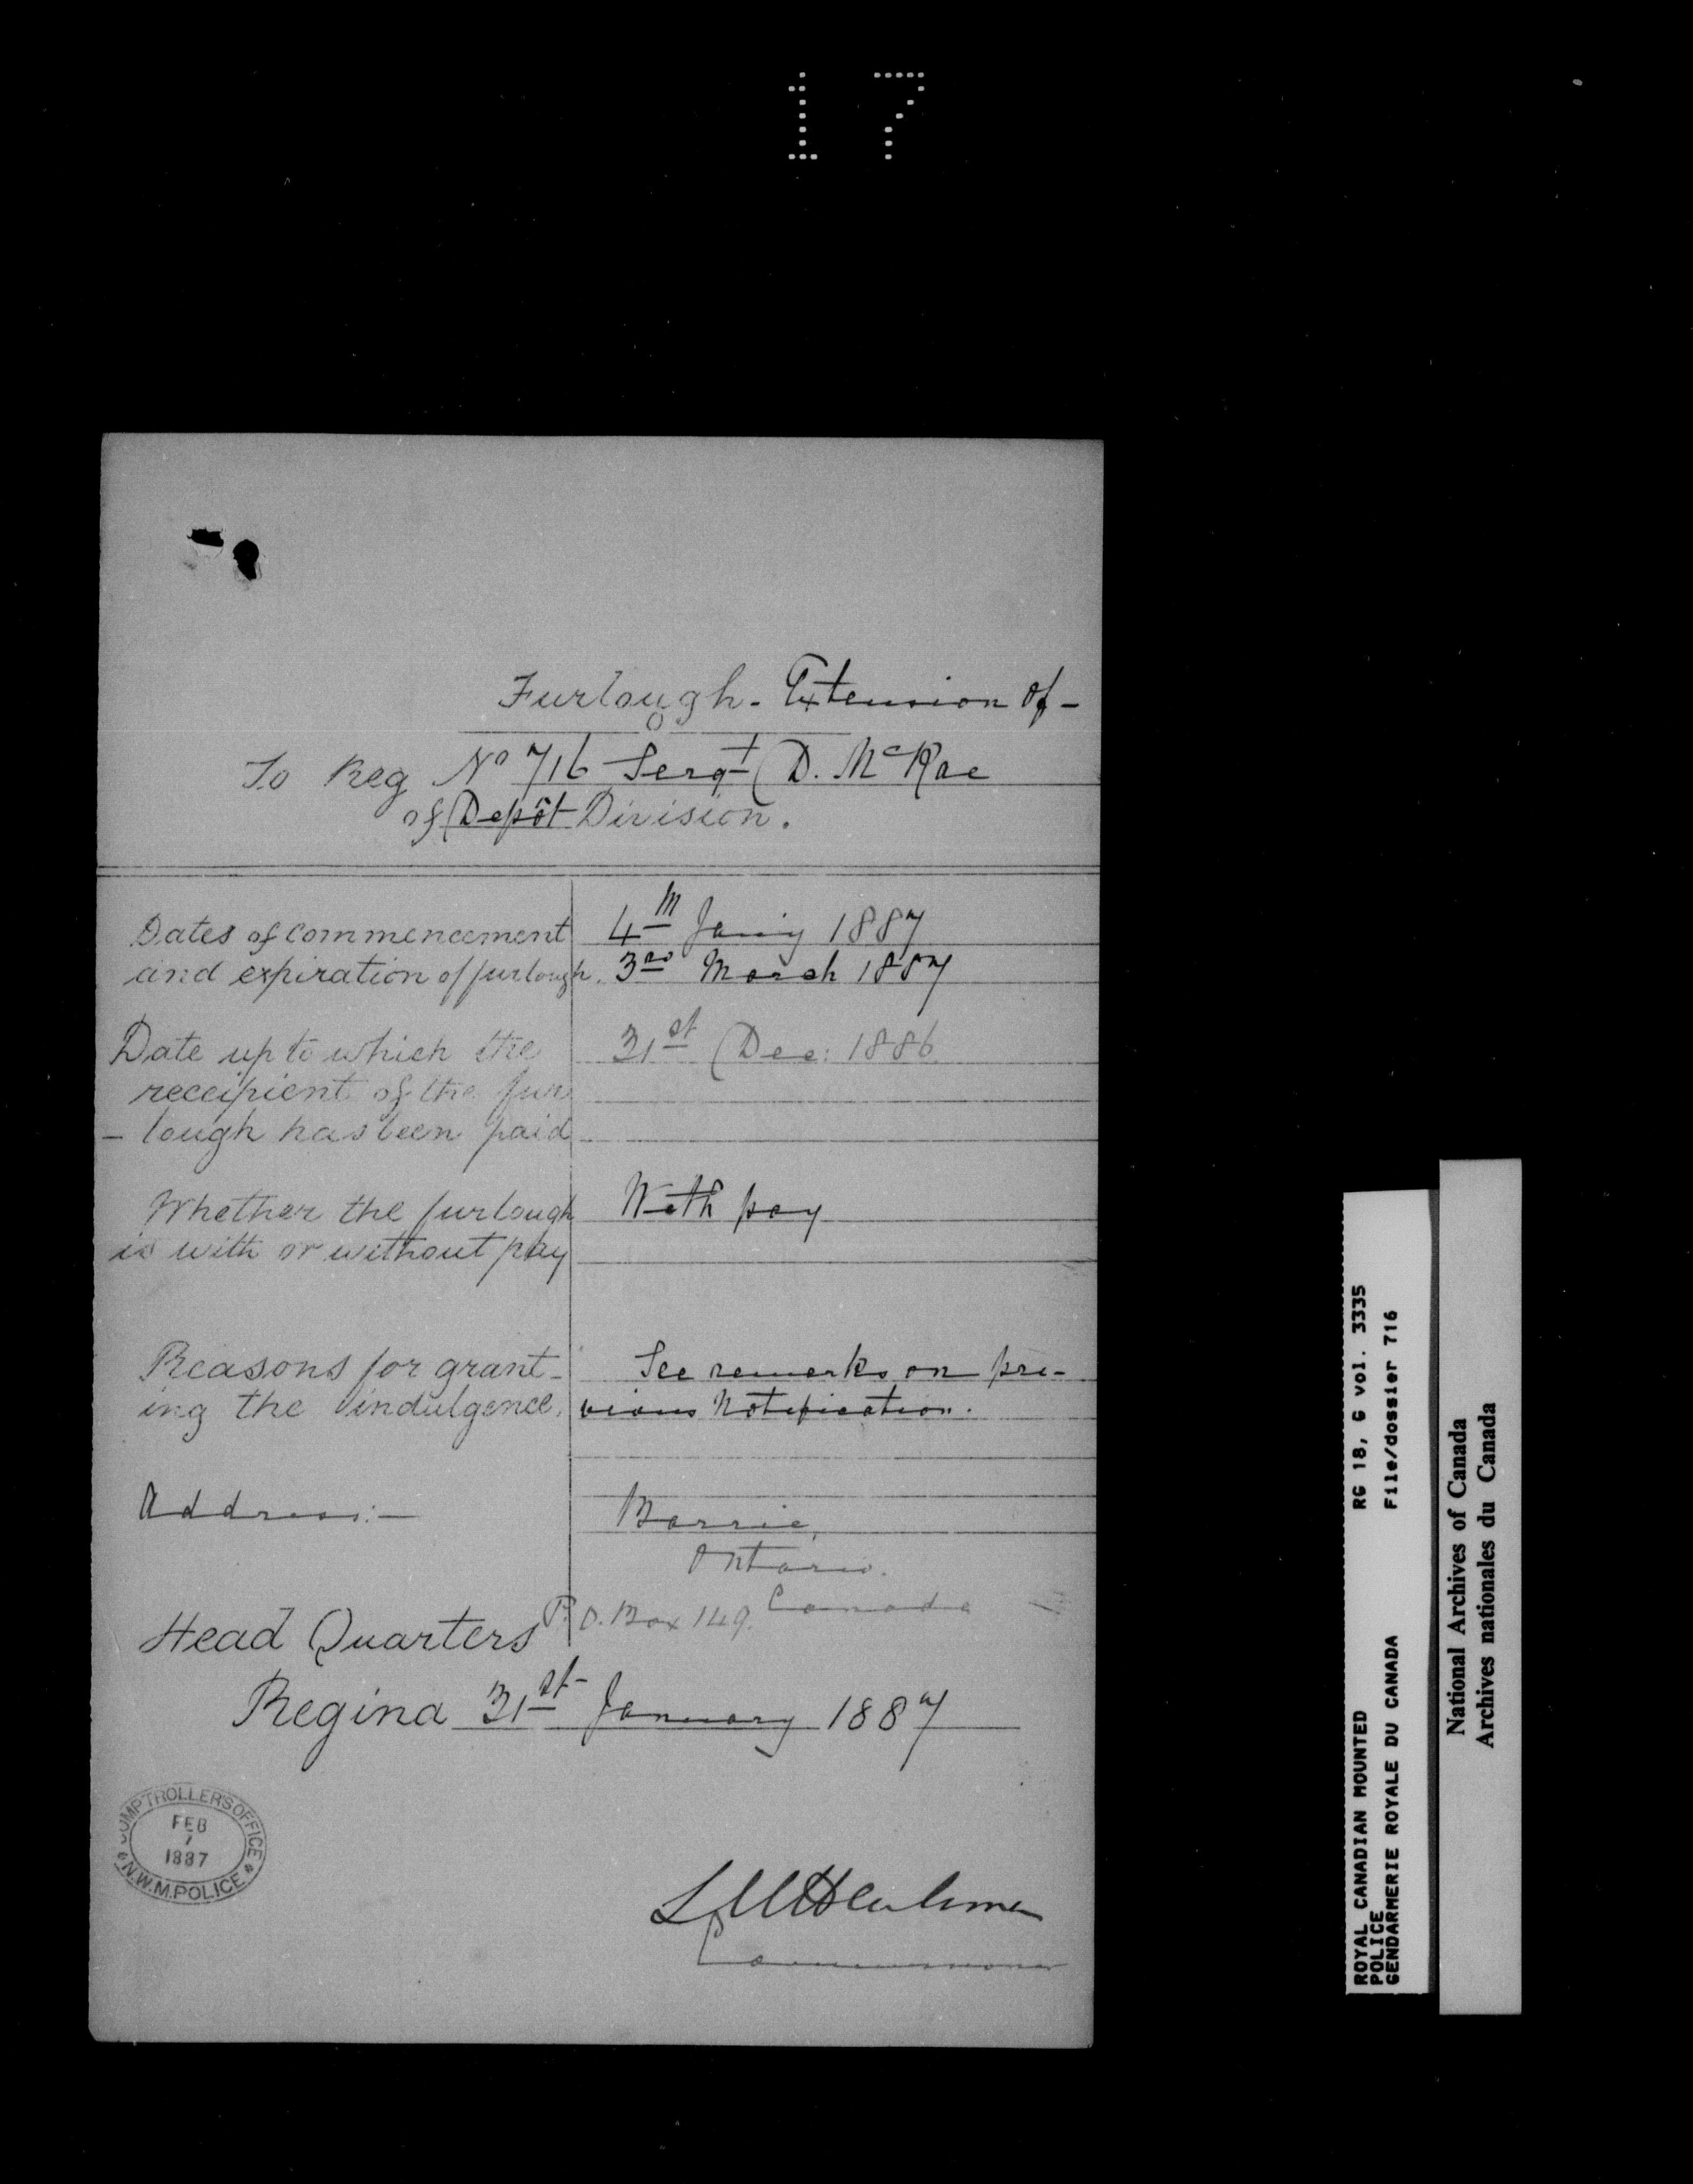 17
Furlough - Extension of -
To Reg No 716 Sergt D. McRae
of Depôt Division.
Dates of commencement 4th Jany 1887
and expiration of furlough. 3rd March 1887
Date up to which the 31st Dec: 1886.
receipient of the fur
- lough has been paid
Whether the furlough With pay
is with or without pay
Reasons for grant- See remarks on pre-
ing the indulgence. vious Notification.
Address:- Barrie,
Ontario.
Canada
P.O. Box 149.
Head Quarters
Regina 31st January 1887
COMPTROLLERS OFFICE
FEB
7
1887
N.W.M. POLICE
Commissioner
ROYAL CANADIAN MOUNTED RG 18, G vol. 3335
POLICE
GENDARMERIE ROYALE DU CANADA File/dossier 716
National Archives of Canada
Archives nationales du Canada